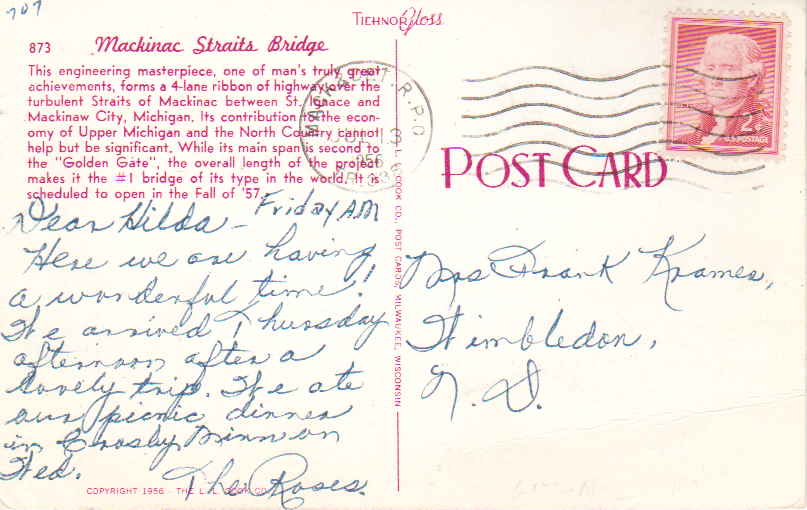 707
TICHNOR Gloss
873 Mackinac Straits Bridge
This engineering masterpiece, one of man's truly great
achievements, forms a 4-lane ribbon of highway over the
turbulent Straits of Mackinac between St. Ignace and
Mackinaw City, Michigan. Its contribution to the econ-
omy of Upper Michigan and the North Country cannot
help but be significant. While its main span is second to
the "Golden Gate", the overall length of the project
makes it the #1 bridge of its type in the world. It is
scheduled to open in the Fall of '57.
Friday AM
Dear Hilda –
Here we are having
a wonderful time!
We arrived Thursday
afternoon after a
lovely trip. We ate
our picnic dinner
in Crosby Minn on
Wed.
The Roses.
COPYRIGHT 1956 - THE L. L. COOK CO.
COOK CO., POST CARDS, MILWAUKEE, WISCONSIN
R.P.O
1956
POST CARD
2¢
POSTAGE
Mrs Frank Kramer,
Wimbledon,
N. D.